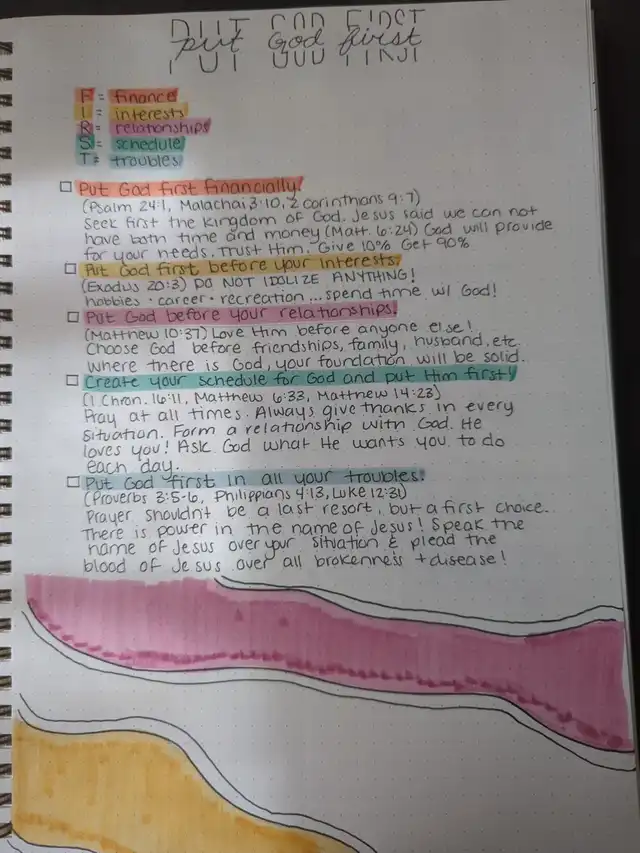 PUT GOD FIRST
put God first
F = finance
I = interests
R = relationships
S = schedule
T = troubles
Put God first financially!
(Psalm 24:1, Malachai 3:10, 2 Corinthians 9:7)
Seek first the kingdom of God. Jesus said we can not
have both time and money (Matt. 6:24) God will provide
for your needs. Trust Him. Give 10% Get 90%.
Put God first before your interests.
(Exodus 20:3) DO NOT IDOLIZE ANYTHING!
hobbies · career · recreation... spend time w/ God!
Put God before your relationships!
(Matthew 10:37) Love Him before anyone else!
Choose God before friendships, family, husband, etc.
Where there is God, your foundation will be solid.
Create your schedule for God and put Him first!
(1 Chron. 16:11, Matthew 6:33, Matthew 14:23)
Pray at all times. Always give thanks in every
situation. Form a relationship with God. He
loves you! Ask God what He wants you to do
each day.
Put God first in all your troubles!
(Proverbs 3:5-6, Philippians 4:13, Luke 12:31)
Prayer shouldn't be a last resort, but a first choice.
There is power in the name of Jesus! Speak the
name of Jesus over your situation & plead the
blood of Jesus over all brokenness + disease!